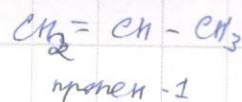 CH₂ = CH - CH₃
пропен -1